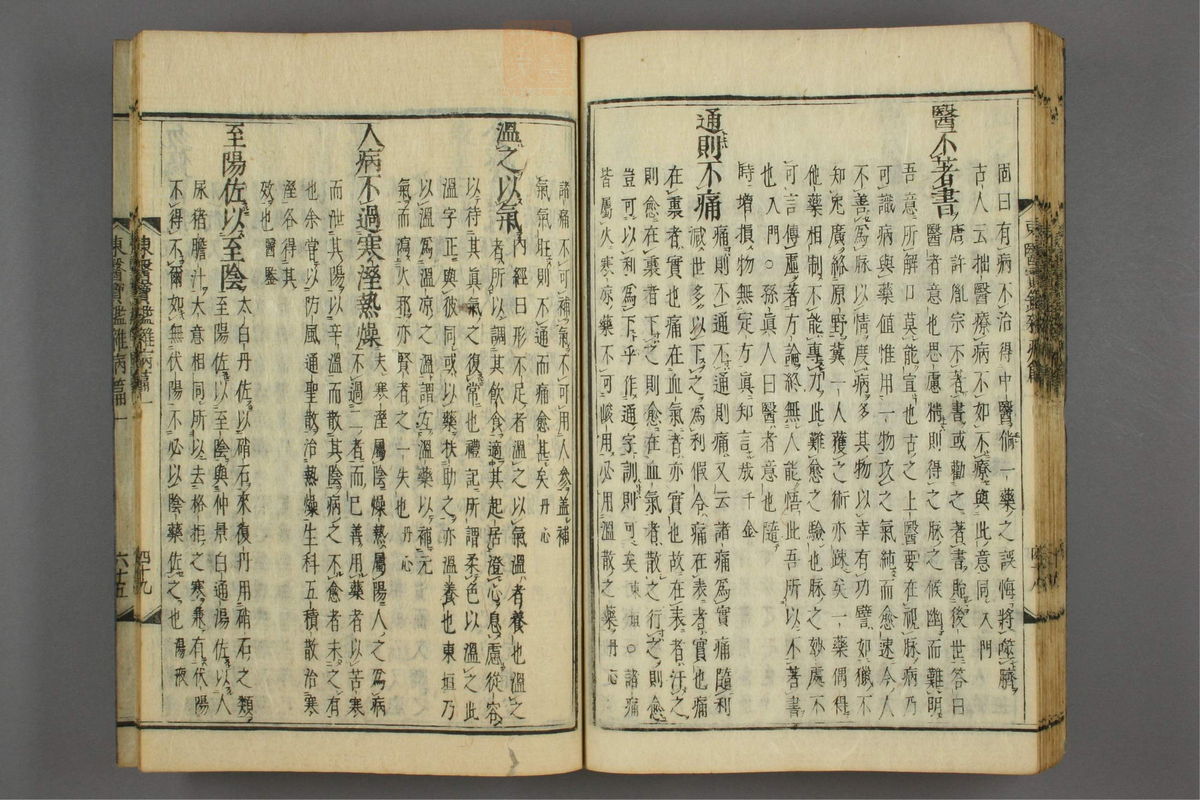 固曰有病不治得中醫倘一藥之誤悔將噬臍
古人云拙醫療病不如不療與此意同入門
醫不著書
唐許胤宗不著書或勸之著書貽後世答曰
醫者意也思慮精則得之脉之候幽而難明
吾意所解口莫能宣也古之上醫要在視脉病乃
可識病與藥值惟用一物攻之氣純而愈速今人
不善爲脉以情度病多其物以幸有功譬如獵不
知兎廣絡原野冀一人獲之術亦踈矣一藥偶得
他藥相制不能專力此難愈之驗也脉之妙處不
可言傳虛著方論終無人能悟此吾所以不著書
也入門○孫眞人曰醫者意也隨
時增損物無定方眞知言哉千金
通則不痛
痛則不通不通則痛又云諸痛爲實痛隨利
減世多以下之爲利假令痛在表者實也痛
在裏者實也痛在血氣者亦實也故在表者汗之
則愈在裏者下之則愈在血氣者散之行之則愈
豈可以利爲下乎作通字訓則可矣東垣○諸痛
皆屬火寒凉藥不可峻用必用溫散之藥丹心
諸痛不可補氣不可用人參盖補
氣氣旺則不通而痛愈甚矣丹心
溫之以氣
內經曰形不足者溫之以氣溫者養也溫之
者所以調其飮食適其起居澄心息慮從容
以待其眞氣之復常也禮記所謂柔色以溫之此
溫字正與彼同或以藥扶助之亦溫養也東垣乃
以溫爲溫凉之溫謂宜溫藥以補元
氣而瀉火邪亦賢者之一失也丹心
人病不過寒溼熱燥
夫寒溼屬陰燥熱屬陽人之爲病
不過二者而已善用藥者以苦寒
而泄其陽以辛溫而散其陰病之不愈者未之有
也余常以防風通聖散治熱燥生料五積散治寒
溼各得其
效也醫鑑
至陽佐以至陰
太白丹佐以硝石來復丹用硝石之類
至陽佐以至陰與仲景白通湯佐以人
尿猪膽汁大意相同所以去格拒之寒兼有伏陽
不得不爾如無伏陽不必以陰藥佐之也易老
東醫寶鑑雜病篇一
四十九
東醫寶鑑雜病篇一